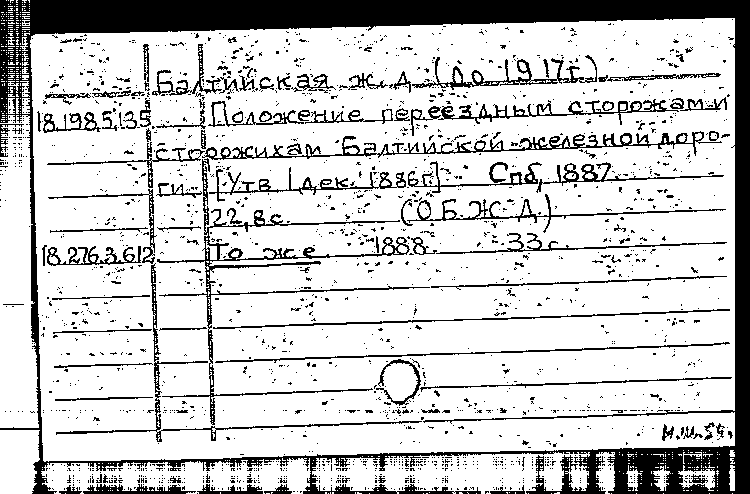 Балтийская ж. д. (до 1917г.)
18.198.5.135 Положение переездным сторожам и
сторожихам Балтийской железной доро-
ги [Утв. 1 дек. 1886г.] Спб, 1887.
22,8с. (О.Б.Ж.Д.)
18.276.3.612 То же 1888 33с.